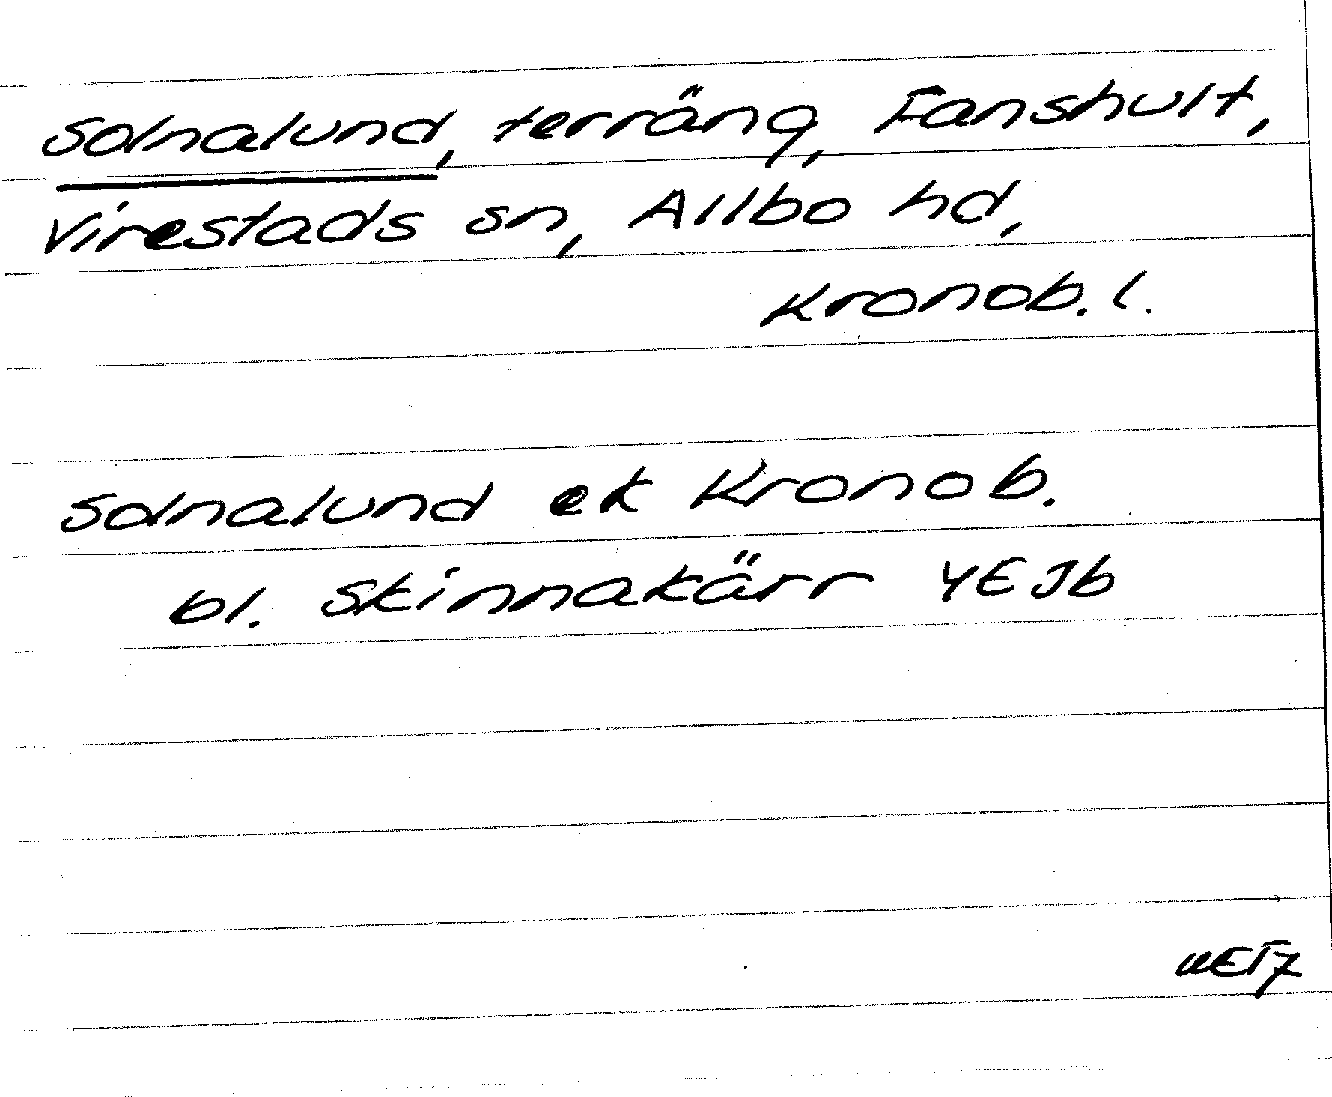 Solnalund, terräng, Fanshult,
Virestads sn, Allbo hd,
Kronob. l.
Solnalund ek Kronob.
bl. Skinnakärr 4E Jb